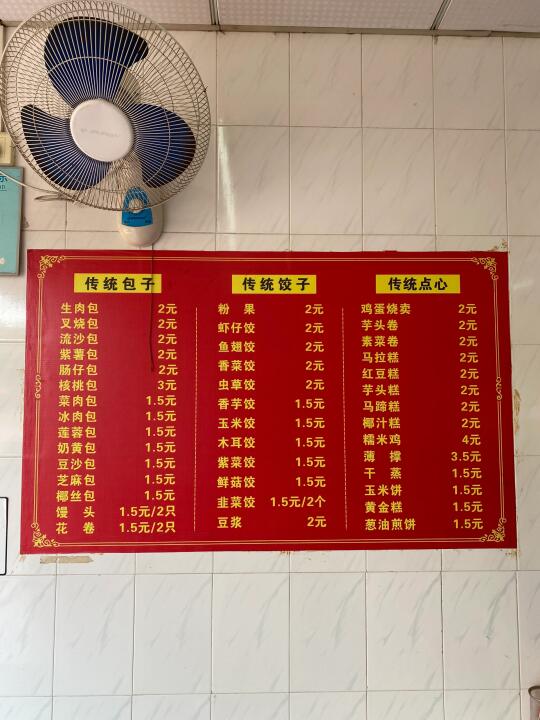 传统包子
生肉包 2元
叉烧包 2元
流沙包 2元
紫薯包 2元
肠仔包 2元
核桃包 3元
菜肉包 1.5元
冰肉包 1.5元
莲蓉包 1.5元
奶黄包 1.5元
豆沙包 1.5元
芝麻包 1.5元
椰丝包 1.5元
馒头 1.5元/2只
花卷 1.5元/2只
传统饺子
粉果 2元
虾仔饺 2元
鱼翅饺 2元
香菜饺 2元
虫草饺 2元
香芋饺 1.5元
玉米饺 1.5元
木耳饺 1.5元
紫菜饺 1.5元
鲜菇饺 1.5元
韭菜饺 1.5元/2个
豆浆 2元
传统点心
鸡蛋烧卖 2元
芋头卷 2元
素菜卷 2元
马拉糕 2元
红豆糕 2元
芋头糕 2元
马蹄糕 2元
椰汁糕 2元
糯米鸡 4元
薄撑 3.5元
干蒸 1.5元
玉米饼 1.5元
黄金糕 1.5元
葱油煎饼 1.5元